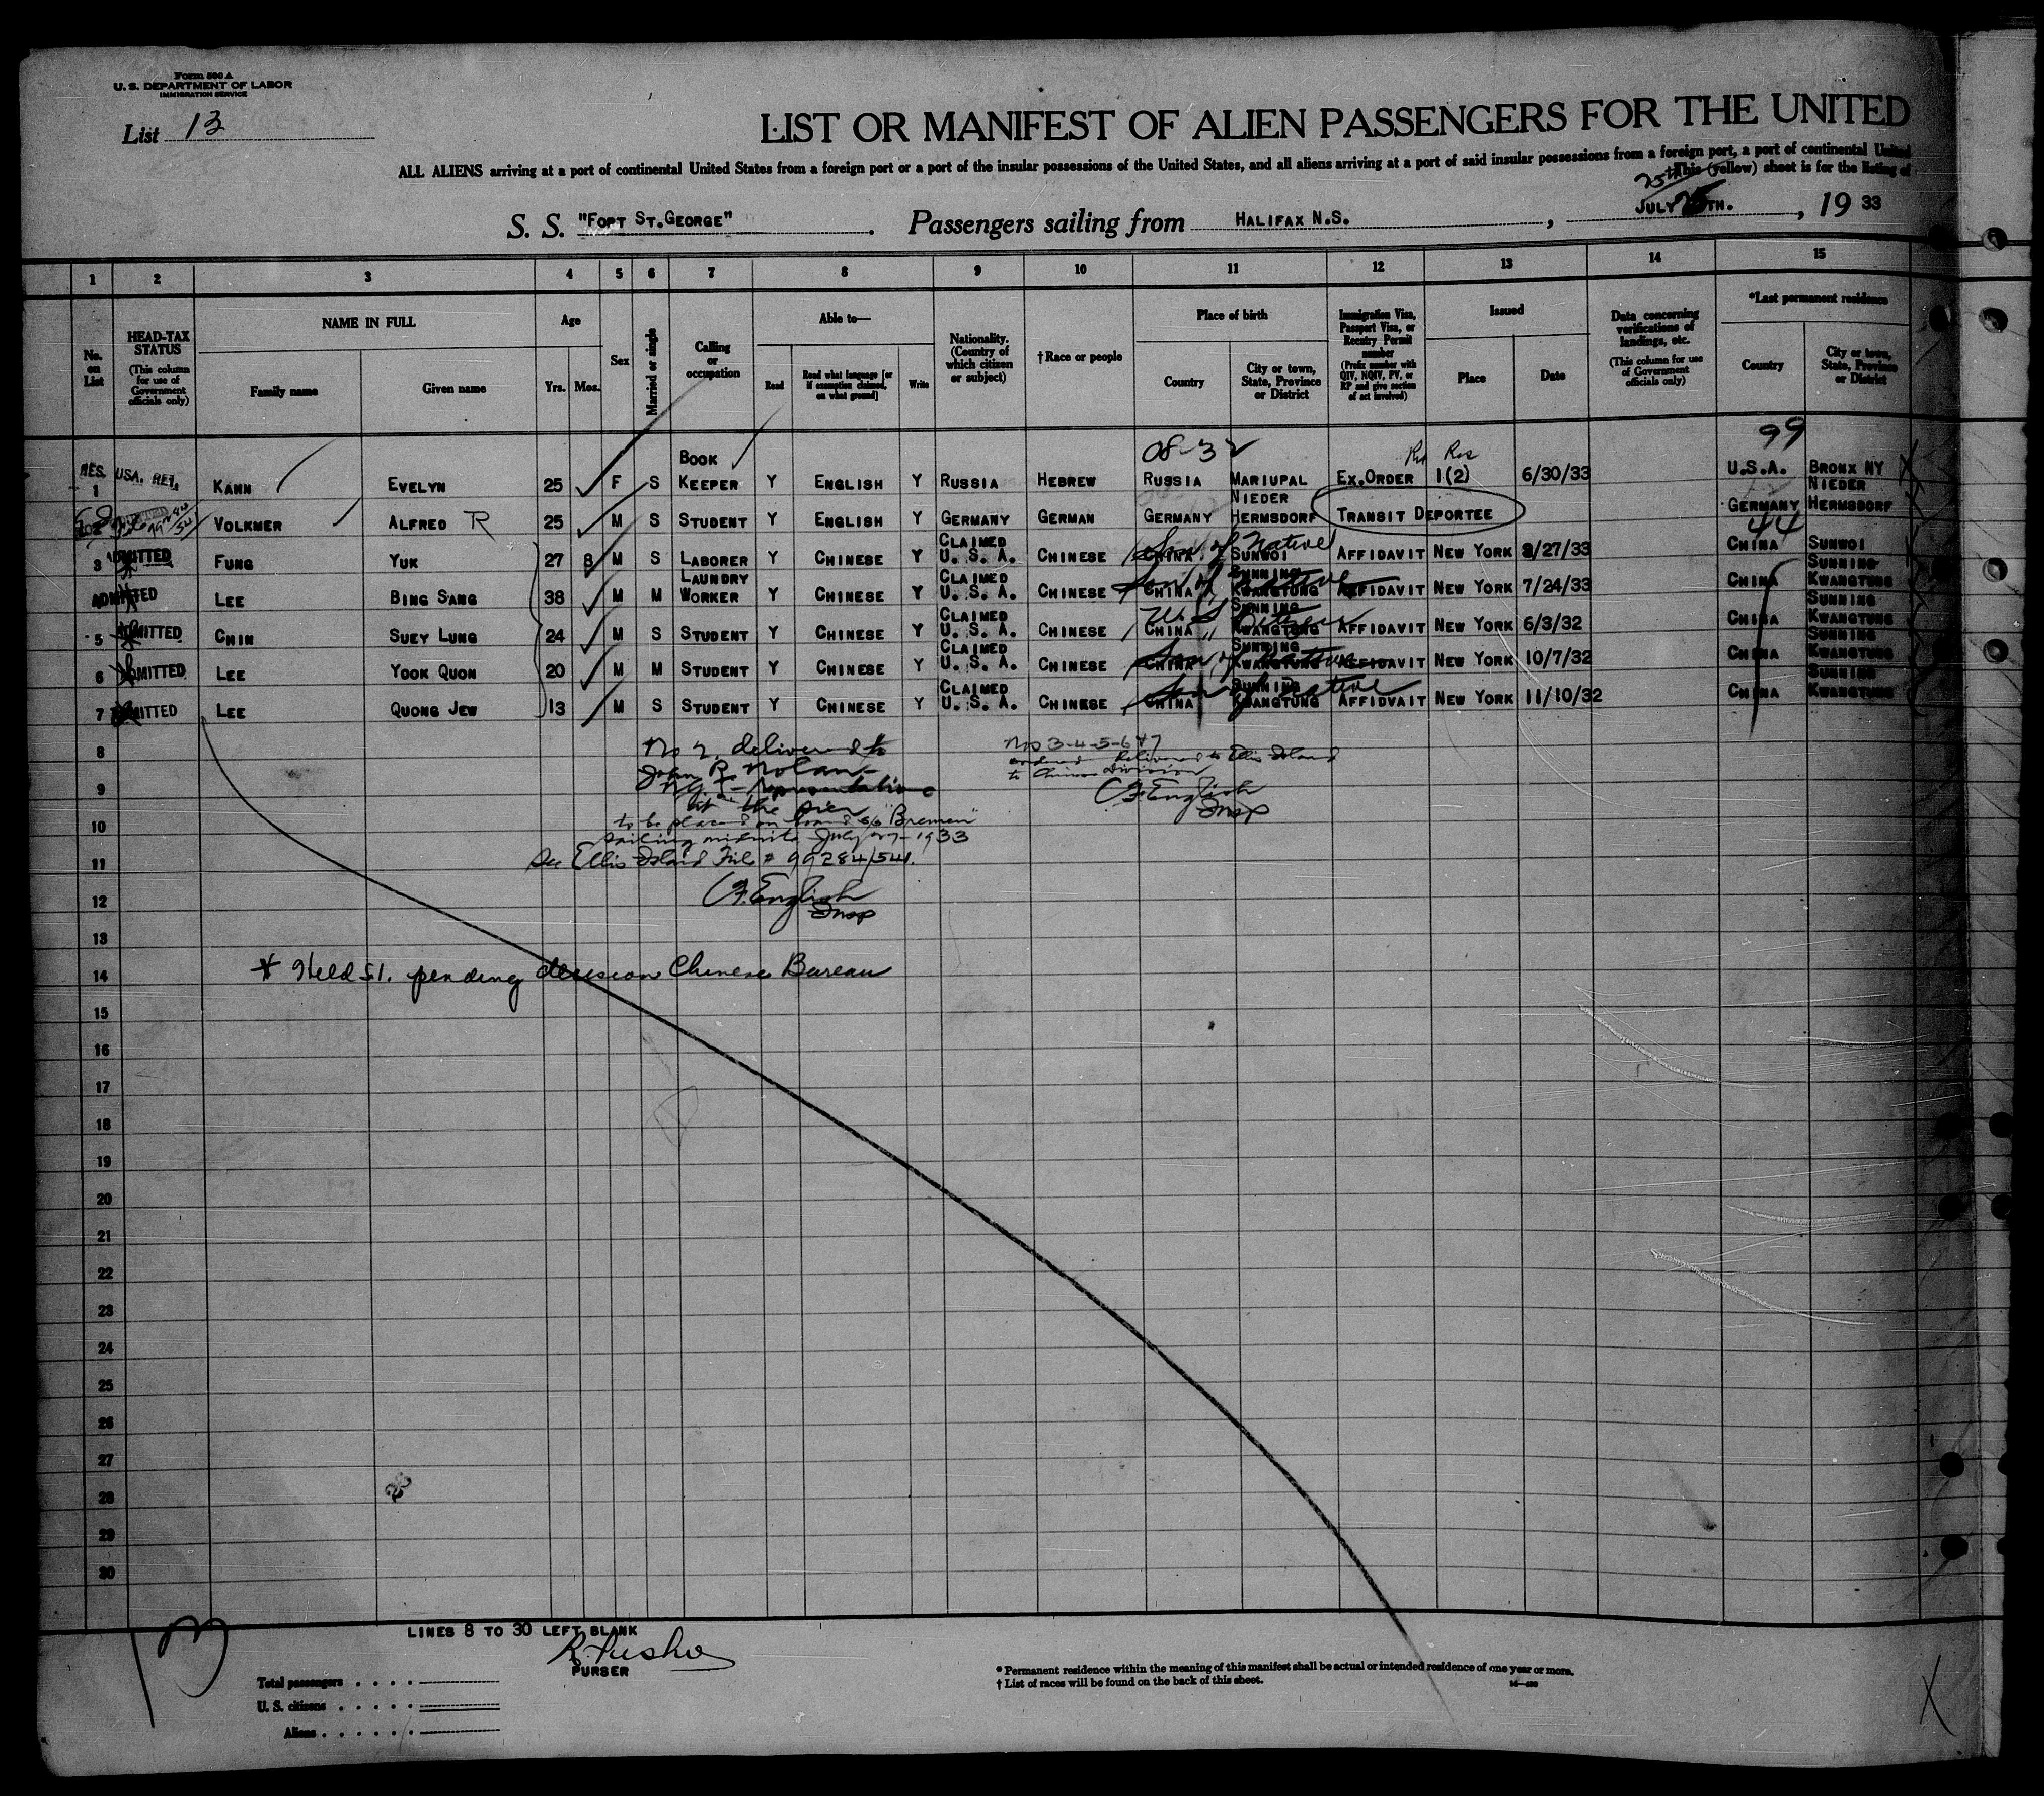 Form 500 A
U. S. DEPARTMENT OF LABOR
IMMIGRATION SERVICE
List 13
LIST OR MANIFEST OF ALIEN PASSENGERS FOR THE UNITED
ALL ALIENS arriving at a port of continental United States from a foreign port or a port of the insular possessions of the United States, and all aliens arriving at a port of said insular possessions from a foreign port, a port of continental United
This (yellow) sheet is for the listing of
25th
S. S. "FORT ST.GEORGE". Passengers sailing from HALIFAX N.S., JULY 25TH., 19 33
1 2 3 4 5 6 7 8 9 10 11 12 13 14 15
No. on List
HEAD-TAX STATUS (This column for use of Government officials only)
NAME IN FULL
Family name
Given name
Age
Yrs. Mos.
Sex
Married or single
Calling or occupation
Able to—
Read
Read what language [or if exemption claimed, on what ground]
Write
Nationality. (Country of which citizen or subject)
†Race or people
Place of birth
Country
City or town, State, Province or District
Immigration Visa, Passport Visa, or Reentry Permit number (Prefix number with QIV, NQIV, PV, or RP and give section of act involved)
Issued
Place
Date
Data concerning verifications of landings, etc. (This column for use of Government officials only)
*Last permanent residence
Country
City or town, State, Province or District
08-32
99
RES. USA. RET.
1 KANN EVELYN 25 F S BOOK KEEPER Y ENGLISH Y RUSSIA HEBREW RUSSIA MARIUPAL EX.ORDER 1(2) 6/30/33 U.S.A. BRONX NY
VOLKMER ALFRED R 25 M S STUDENT Y ENGLISH Y GERMANY GERMAN GERMANY NIEDER HERMSDORF TRANSIT DEPORTEE GERMANY NIEDER HERMSDORF
44
3 ADMITTED FUNG YUK 27 8 M S LABORER Y CHINESE Y CLAIMED U. S. A. CHINESE CHINA SUNWOI Son of Native AFFIDAVIT NEW YORK 2/27/33 CHINA SUNWOI
ADMITTED LEE BING SANG 38 M M LAUNDRY WORKER Y CHINESE Y CLAIMED U. S. A. CHINESE CHINA SUNNING KWANGTUNG Son of Native AFFIDAVIT NEW YORK 7/24/33 CHINA SUNNING KWANGTUNG
5 ADMITTED CHIN SUEY LUNG 24 M S STUDENT Y CHINESE Y CLAIMED U. S. A. CHINESE CHINA SUNNING KWANGTUNG U.S. Citizen AFFIDAVIT NEW YORK 6/3/32 CHINA SUNNING KWANGTUNG
6 ADMITTED LEE YOOK QUON 20 M M STUDENT Y CHINESE Y CLAIMED U. S. A. CHINESE CHINA SUNNING KWANGTUNG Son of Native AFFIDAVIT NEW YORK 10/7/32 CHINA SUNNING KWANGTUNG
7 ADMITTED LEE QUONG JEW 13 M S STUDENT Y CHINESE Y CLAIMED U. S. A. CHINESE CHINA SUNNING KWANGTUNG Son of Native AFFIDVAIT NEW YORK 11/10/32 CHINA SUNNING KWANGTUNG
8
9
10
11
12
13
14
15
16
17
18
19
20
21
22
23
24
25
26
27
28
29
30
No 2 delivered to
John P. Nolan
representative
at the pier
to be placed on board SS "Bremen"
sailing midnite July 27-1933
See Ellis Island File # 99284/541.
C.F. English
Insp
Nos 3-4-5-6&7
delivered to Ellis Island
to Chinese Division
C.F. English
Insp
* Held S.I. pending decision Chinese Bureau
LINES 8 TO 30 LEFT BLANK
PURSER
Total passengers
U. S. citizens
Aliens
* Permanent residence within the meaning of this manifest shall be actual or intended residence of one year or more.
† List of races will be found on the back of this sheet.